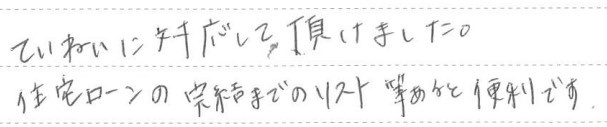 ていねいに対応して頂けました。
住宅ローンの完結までのリスト等あると便利です.